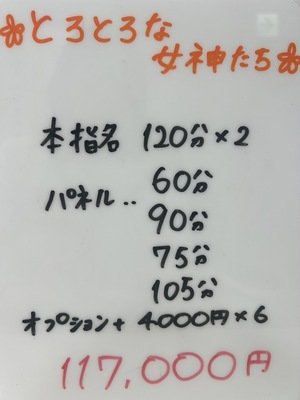 とろとろな
女神たち
本指名 120分×2
パネル‥ 60分
90分
75分
105分
オプション+ 4000円×6
117,000円